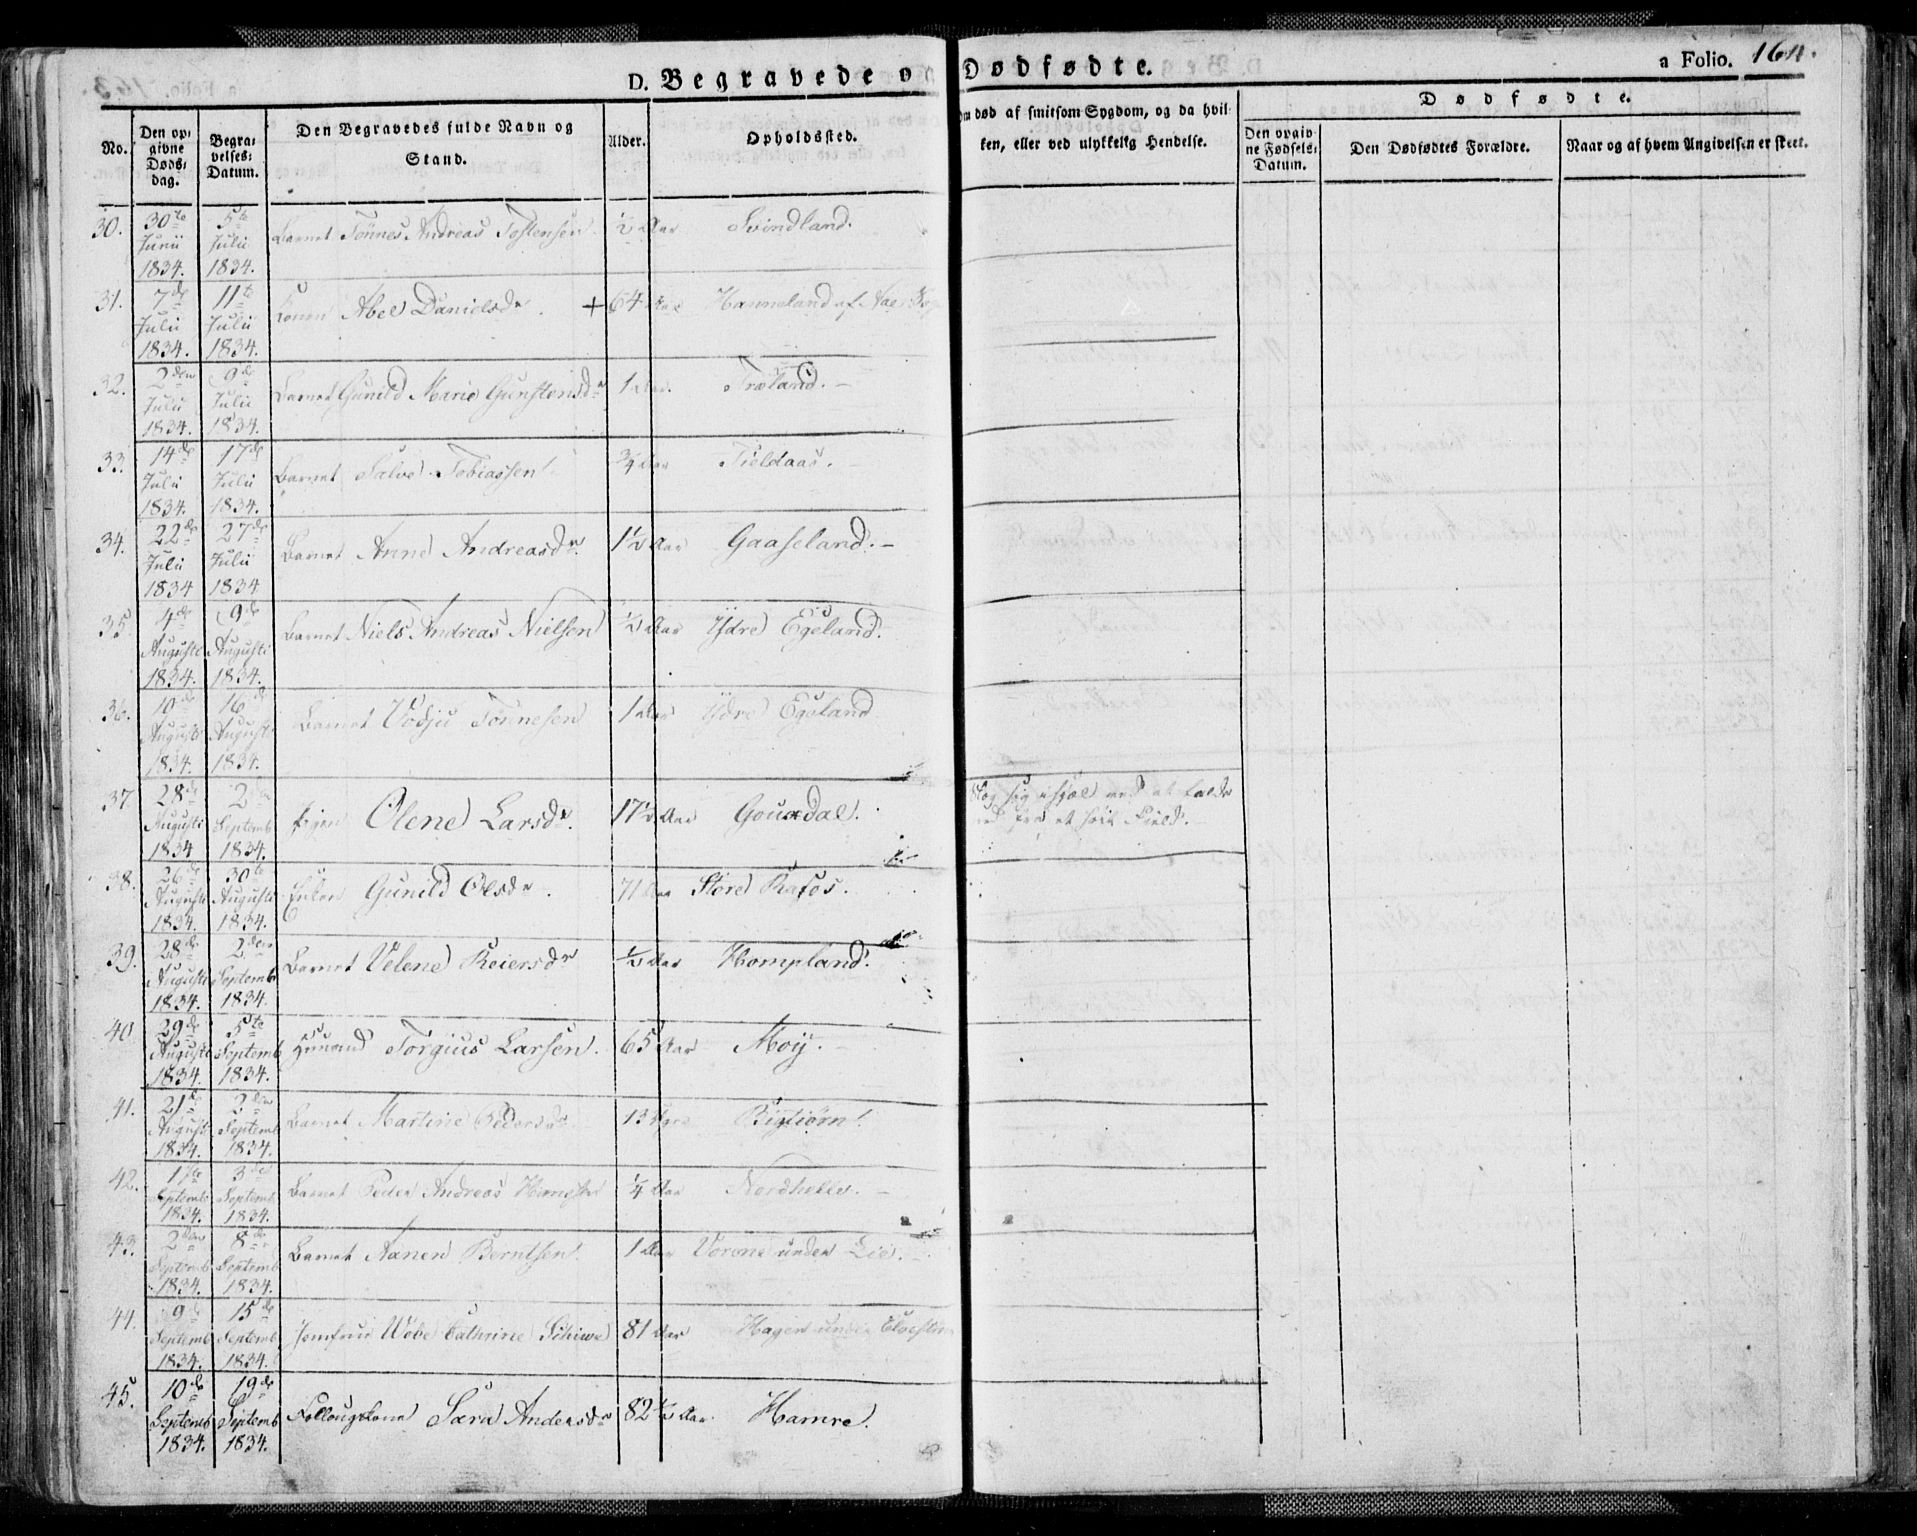 D. Begravede o
Dødfødte.
a Folio. 164.
No.
Den op=
givne
Døds=
dag.
Begra=
velses=
Datum.
Den Begravedes fulde Navn og
Stand.
Alder.
Opholdssted.
død af smitsom Sygdom, og da hvil=
ken, eller ved ulykkelig Hendelse.
Dødfødte.
Den opgiv=
ne Fødsels=
Datum.
Den Dødfødtes Forældre.
Naar og af hvem Angivelsen er skeet.
30. 30te Junii 1834. 5te Julii 1834. Barnet Tønnes Andreas Tostensen ½ Aar Svindland.
31. 7de Julii 1834. 11te Julii 1834. Konen Abel Danielsdr. + 64 Aar Hanneland af
32. 2den Julii 1834. 9de Julii 1834. Barnet Gunild Marie Gunstensdr 1 Aar. Træland. –
33. 14de Julii 1834. 17de Julii 1834. Barnet Salve Tobiassen ¾ Aar Fieldaas. –
34. 22de Julii 1834 27de Julii 1834 Barnet Anne Andreasdr. 1½ Aar Gaaseland. –
35. 4de Augusti 1834. 9de Augusti 1834. Barnet Niels Andreas Nielsen ½ Aar Ydre Egeland.
36. 10de Augusti 1834. 16de Augusti 1834. Barnet Tønnesen 1 Aar Ydre Egeland
37 28de Augusti 1834 2den Septemb 1834. Pigen Olene Larsdr. 17½ Aar Gousdal. slog sig ihjæl ved at falde
ned fra et høit Field. –
38. 26de Augusti 1834. 30te Augusti 1834. Enken Gunild Olsdr. 71 Aar Store Rafos.
39. 28de Augusti 1834. 2den Septemb 1834. Barnet Velene Reiersdr ½ Aar Hompland.
40 29de Augusti 1834. 5te Septemb 1834. Huusmand Torgius Larsen. 65 Aar Moij. –
41. 21de August 1834. 2den Septemb 1834. Barnet Martine Pedersdr 13 Bigtiørn.
42. 1ste Septemb 1834. 3de Septemb 1834. Barnet Peder Andreas ¼ Aar Nordhelle. –
43. 2den Septemb 1834. 8de Septemb 1834. Barnet Aanen Berntsen. 1 Aar under Lie. –
44. 9de Septemb 1834. 15de Septemb 1834. Jomfrue Wobe Cathrine 81 Aar Hagen under
45. 10de Septemb 1834. 19de Septemb 1834. Follougskone Sara Andersdr 82½ Aar. Hamre.